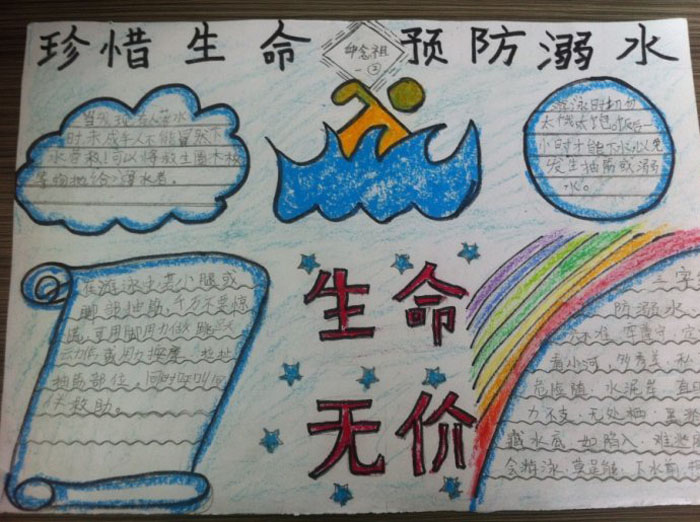 珍惜生命 预防溺水
一②
当发现有人落水
时未成年人不能冒然下
水营救!可以将救生圈木板
等物抛给溺水者。
游泳时切勿
太饿太饱。饭后一
小时才能下水,以免
发生抽筋或溺
水。
在游泳中若小腿或
脚部抽筋,千万不要惊
慌,可用脚用力做跳
用力按摩、拉扯
抽筋部位,同时呼叫同
伴救助。
生命
无价
三字
防溺水
看小河,
危险随,水泥
力不支,无处栖,
藏水底,如陷入,难
会游泳,下水前